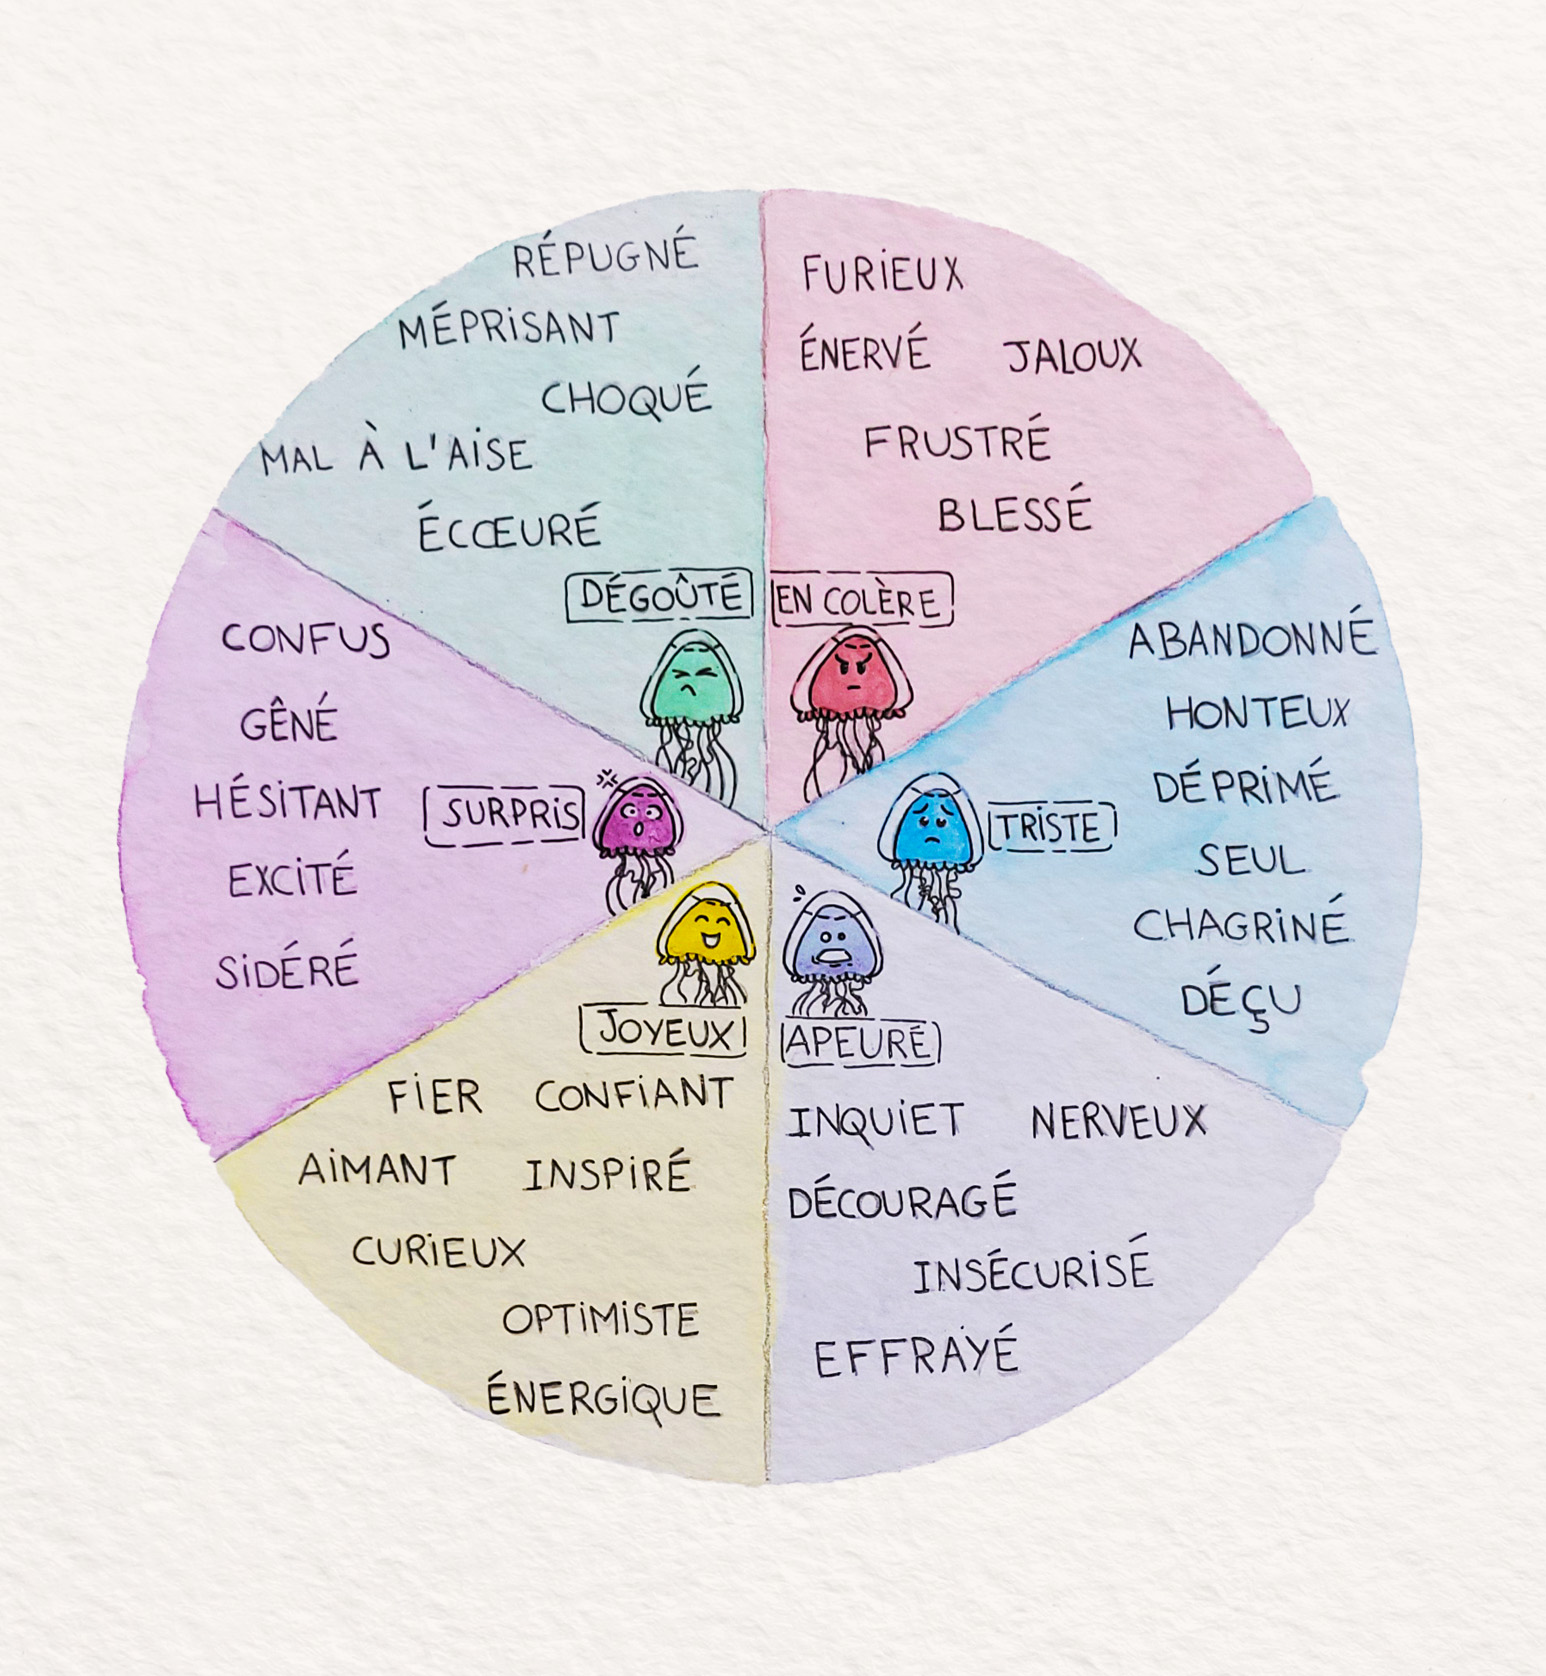 RÉPUGNÉ
MÉPRiSANT
CHOQUÉ
MAL À L'AiSE
ÉCŒURÉ
DÉGOÛTÉ
FURiEUX
ÉNERVÉ JALOUX
FRUSTRÉ
BLESSÉ
EN COLÈRE
ABANDONNÉ
HONTEUX
DÉPRiMÉ
TRiSTE
SEUL
CHAGRiNÉ
DÉÇU
APEURÉ
iNQUiET NERVEUX
DÉCOURAGÉ
INSÉCURiSÉ
EFFRAYÉ
JOYEUX
FiER CONFiANT
AiMANT INSPiRÉ
CURiEUX
OPTiMiSTE
ÉNERGiQUE
CONFUS
GÊNÉ
HÉSiTANT
SURPRiS
EXCiTÉ
SiDÉRÉ